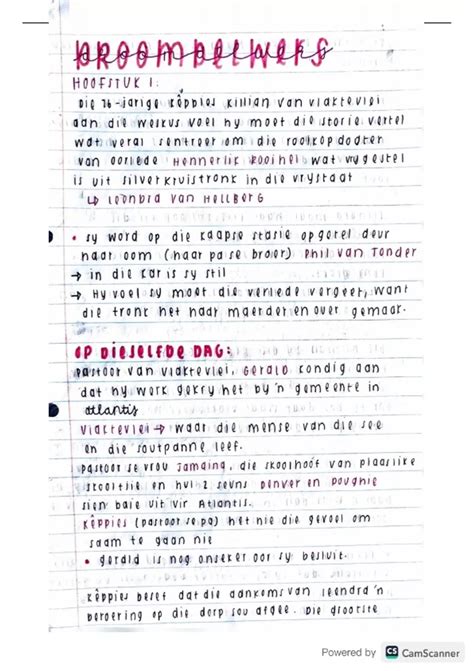 DROOMDELWERS
HOOFSTUK 1:
Die 76-jarige kêppies killian van vlaktevlei
aan die weskus voel hy moet die storie vertel
wat veral sentreer om die rooikop dogter
van oorlede Hennerlik Rooinel wat vrygestel
is uit silverkruistronk in die vrystaat
↳ Leondra van Hellberg
• sy word op die kaapse stasie opgetel deur
haar oom (haar pa se broer) Phil van Tonder
→ in die kar is sy stil
→ Hy voel sy moet die verlede vergeet, want
die tronk het haar maerder en over gemaar.
OP DIESELFDE DAG:
Pastoor van vlaktevlei, Gerald kondig aan
dat hy werk gekry het by 'n gemeente in
atlantis
Vlaktevlei → waar die mense van die see
en die soutpanne leef.
pastoor se vrou Jamaing, die skoolhoof van plaaslike
skooltjie en hul 2 seuns Denver en Doughie
sien baie uit vir Atlantis.
kêppies (pastoor se pa) het nie die gevoel om
saam te gaan nie
• gerald is nog onseker oor sy besluit.
kêppies besef dat die aankoms van leendra 'n
beroering op die dorp sou afgee. Die grootste
Powered by CS CamScanner